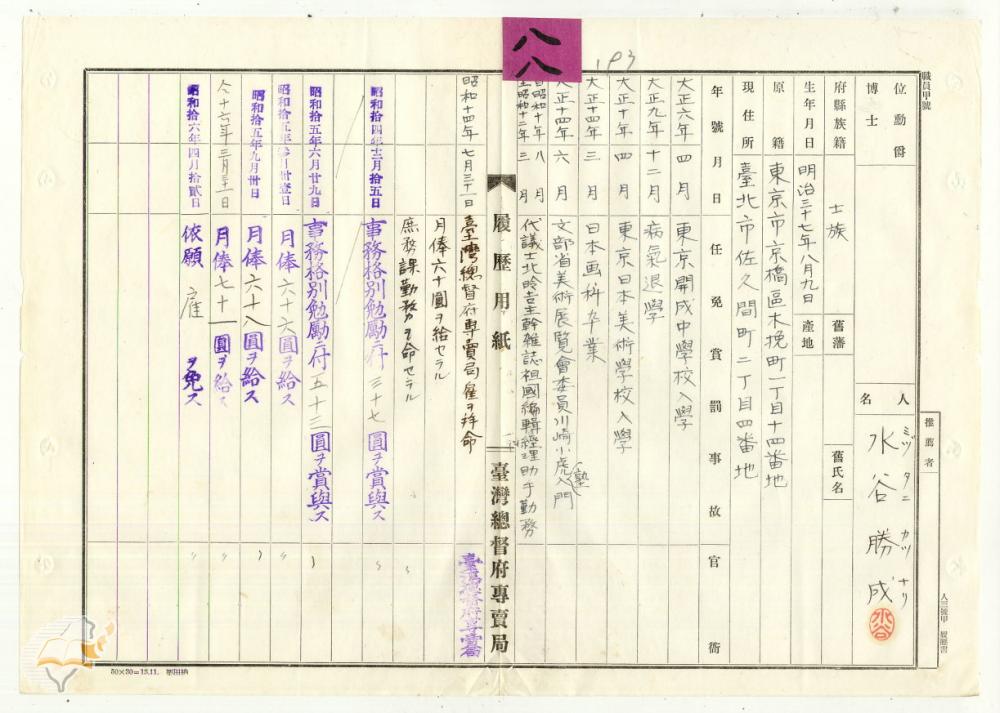 八八
193
職員甲號
位勳爵
博士
人名
ミヅタニ カツナリ
水谷勝成
水谷
推薦者
人三號甲 履歷書
府縣族籍 士族
舊藩
舊氏名
生年月日 明治三十七年八月九日
產地
原籍 東京市京橋區木挽町一丁目十四番地
現住所 臺北市佐久間町二丁目四番地
年號月日 任免賞罰事故 官衙
大正六年四月 東京開成中學校入學
大正九年十二月 病氣退學
大正十年四月 東京日本美術學校入學
大正十四年三月 日本画科卒業
大正十四年六月 文部省美術展覽會委員川崎小虎塾入門
自昭和十年八月
至昭和十二年三月 代議士北昤吉主幹雜誌祖國編輯經理助手勤務
履歷用紙 臺灣總督府專賣局
昭和十四年七月三十一日 臺灣總督府專賣局雇ヲ拜命 臺灣總督府專賣局
月俸六十圓ヲ給セラル
庶務課勤務ヲ命セラル 〃
昭和拾四年十二月拾五日 事務格別勉勵ニ付三十七圓ヲ賞與ス 〃
昭和拾五年六月廿九日 事務格別勉勵ニ付五十三圓ヲ賞與ス 〃
月俸六十六圓ヲ給ス 〃
昭和拾五年九月卅日 月俸六十八圓ヲ給ス 〃
仝十六年三月三十一日 月俸七十一圓ヲ給ス 〃
昭和拾六年四月拾貳日 依願雇ヲ免ス 〃
50×80=13.11.